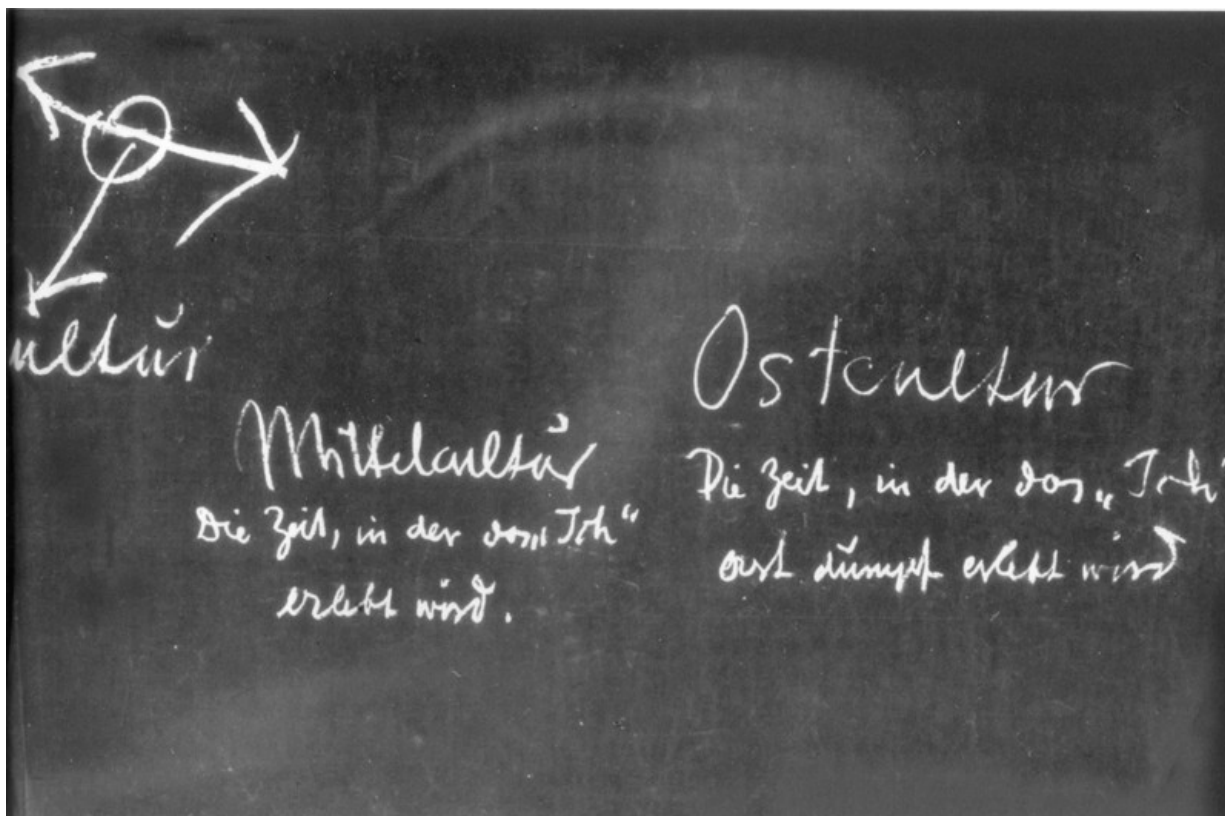 ultur
Mittelcultur
Die Zeit, in der das „Ich“
erlebt wird.
Ostcultur
Die Zeit, in der das „Ich“
erst dumpf erlebt wird